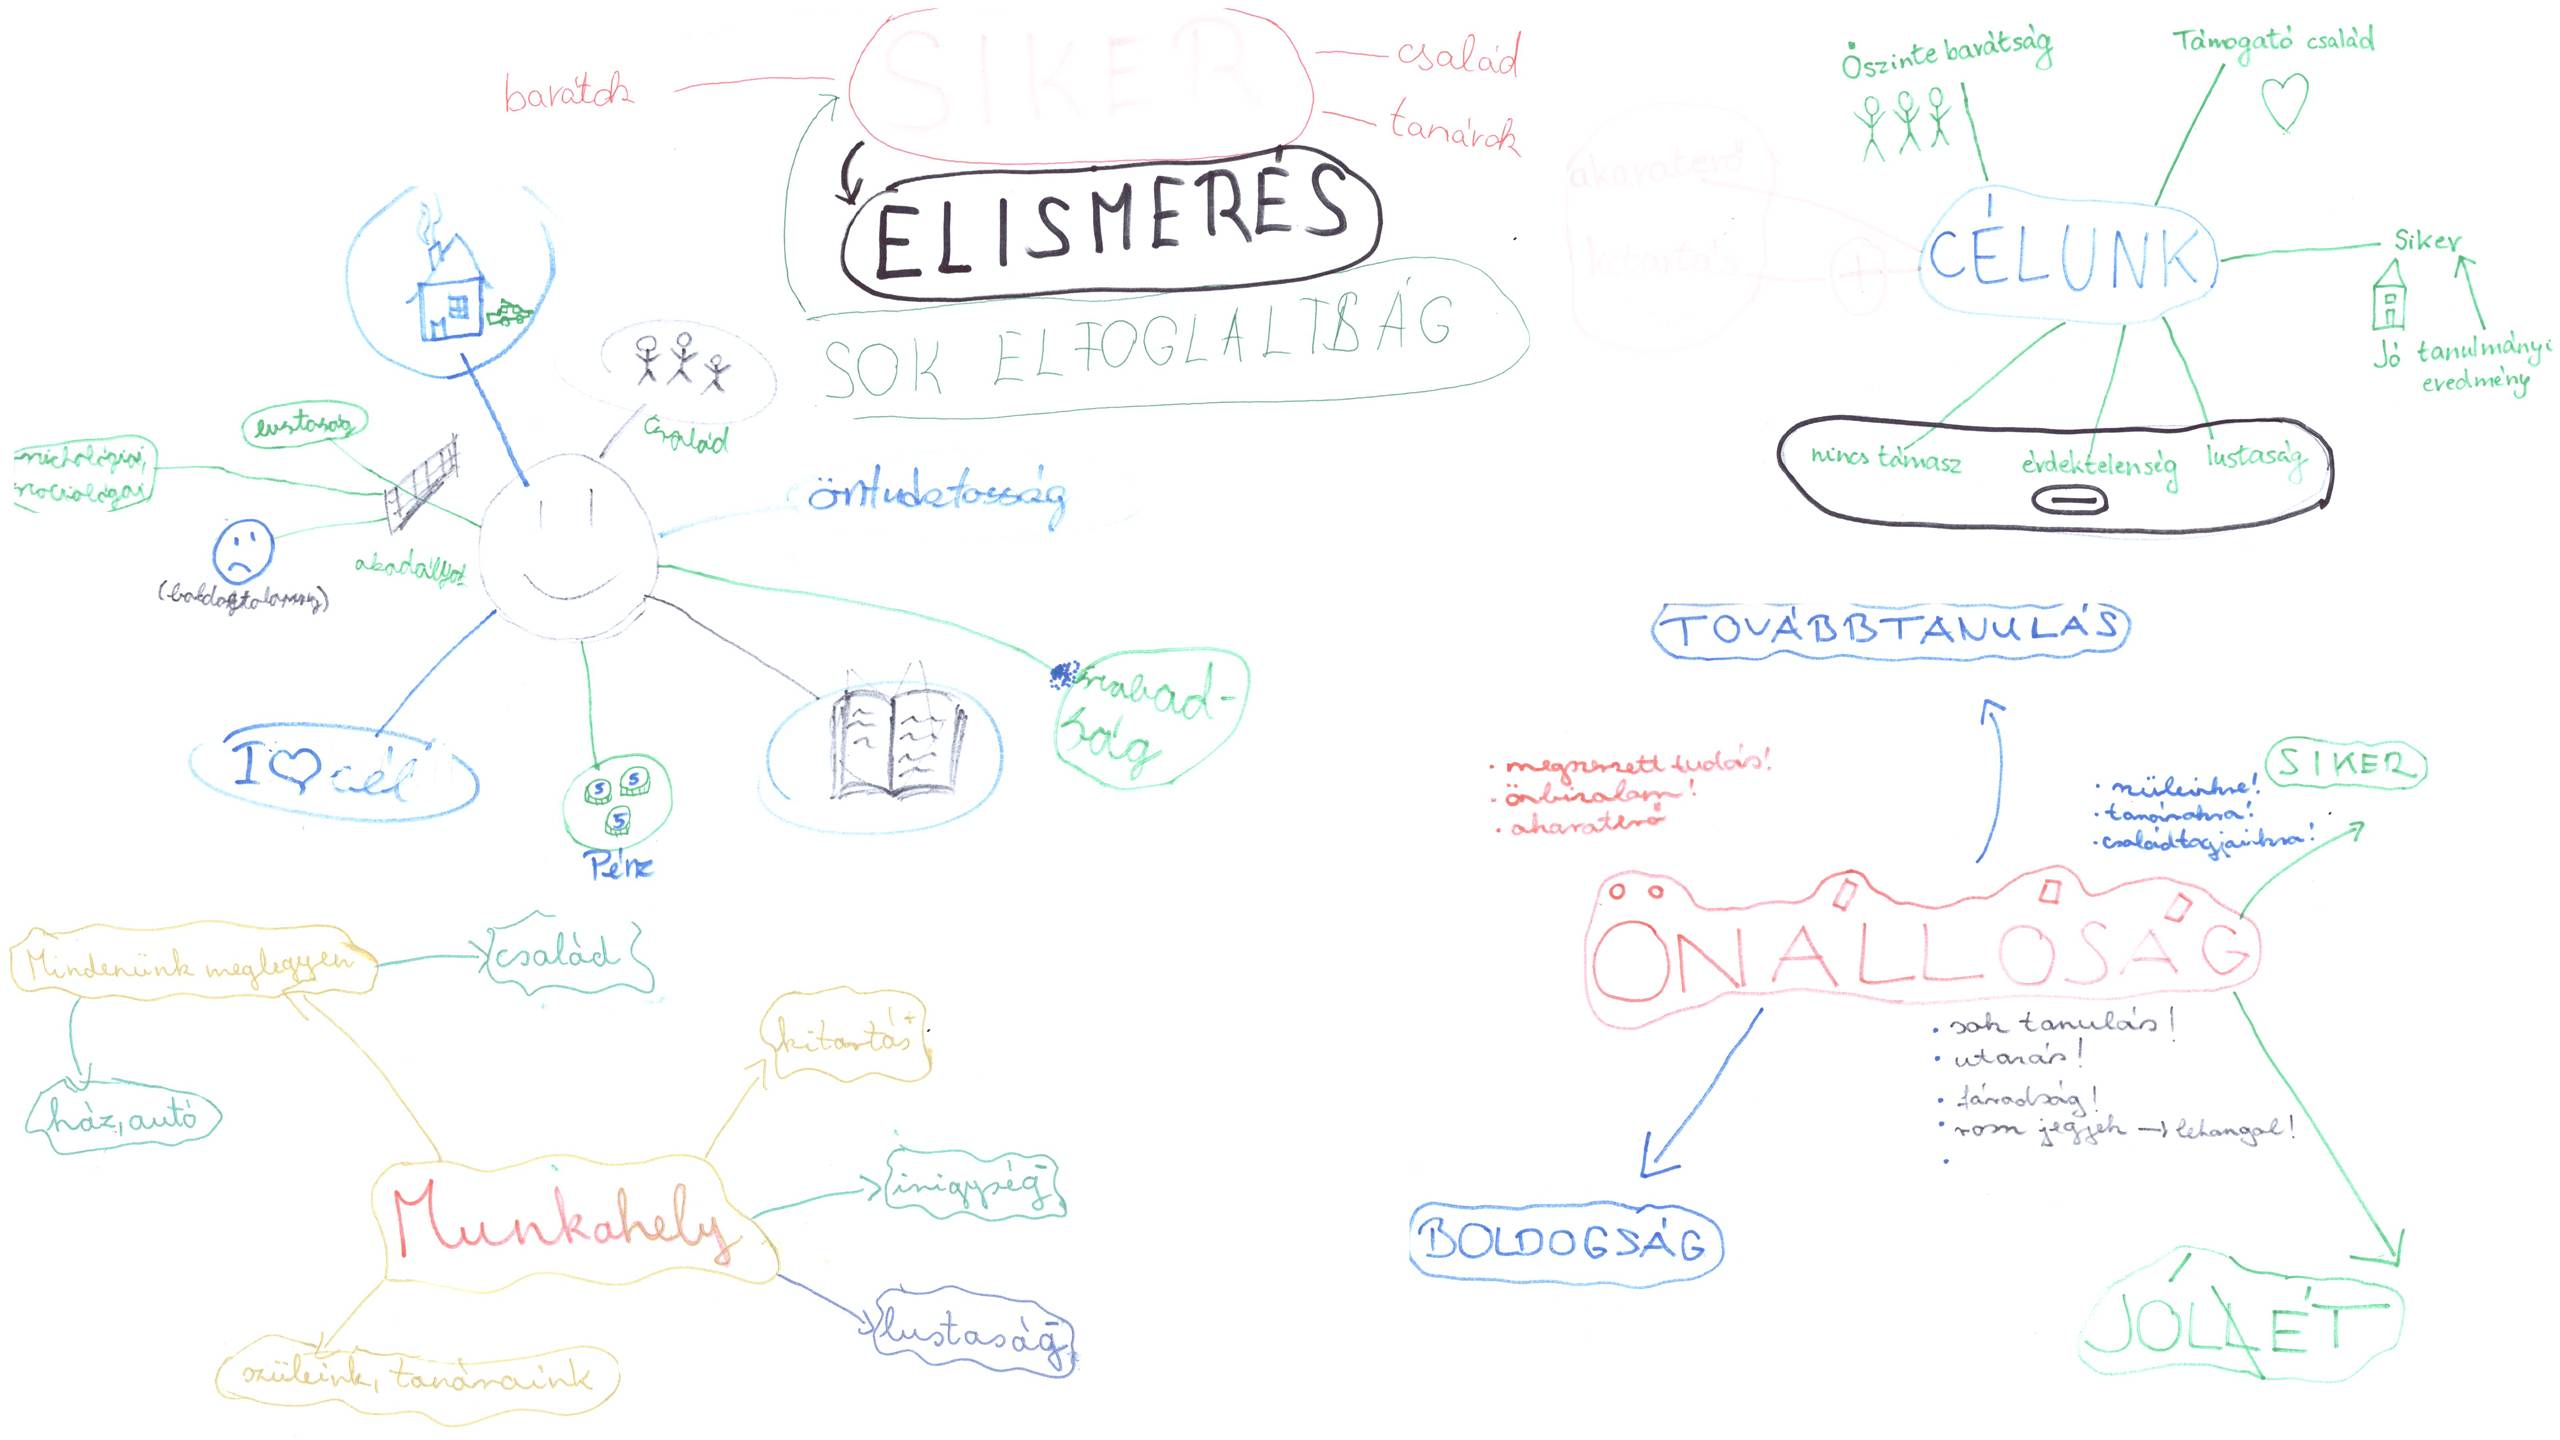 SIKER
barátok
család
tanárok
ELISMERÉS
SOK ELFOGLALTSÁG
család
lustaság
akadályok
öntudatosság
szabad-
ság
I ♡ cél
5 5
5
Pénz
Őszinte barátság
Támogató család
akaraterő
kitartás
+
CÉLUNK
Siker
Jó tanulmányi
eredmény
nincs támasz
érdektelenség
lustaság
–
TOVÁBBTANULÁS
• megszerzett tudás!
• önbizalom!
• akaraterő
SIKER
• szüleinkre!
• tanárokra!
• családtagjainkra!
ÖNÁLLÓSÁG
• sok tanulás!
• utazás!
• fáradság!
• rossz jegyek → lehangol!
•
BOLDOGSÁG
JÓLLÉT
Mindenünk meglegyen
család
ház, autó
kitartás +
Munkahely
irigység –
lustaság –
szüleink, tanáraink